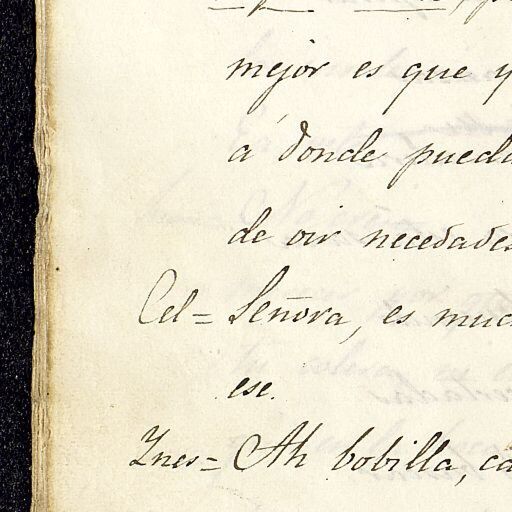 mejor es que y
á donde pueda
de oir necedades
Cel= Señora, es muc
ese.
Ynes= Ah bobilla, ca